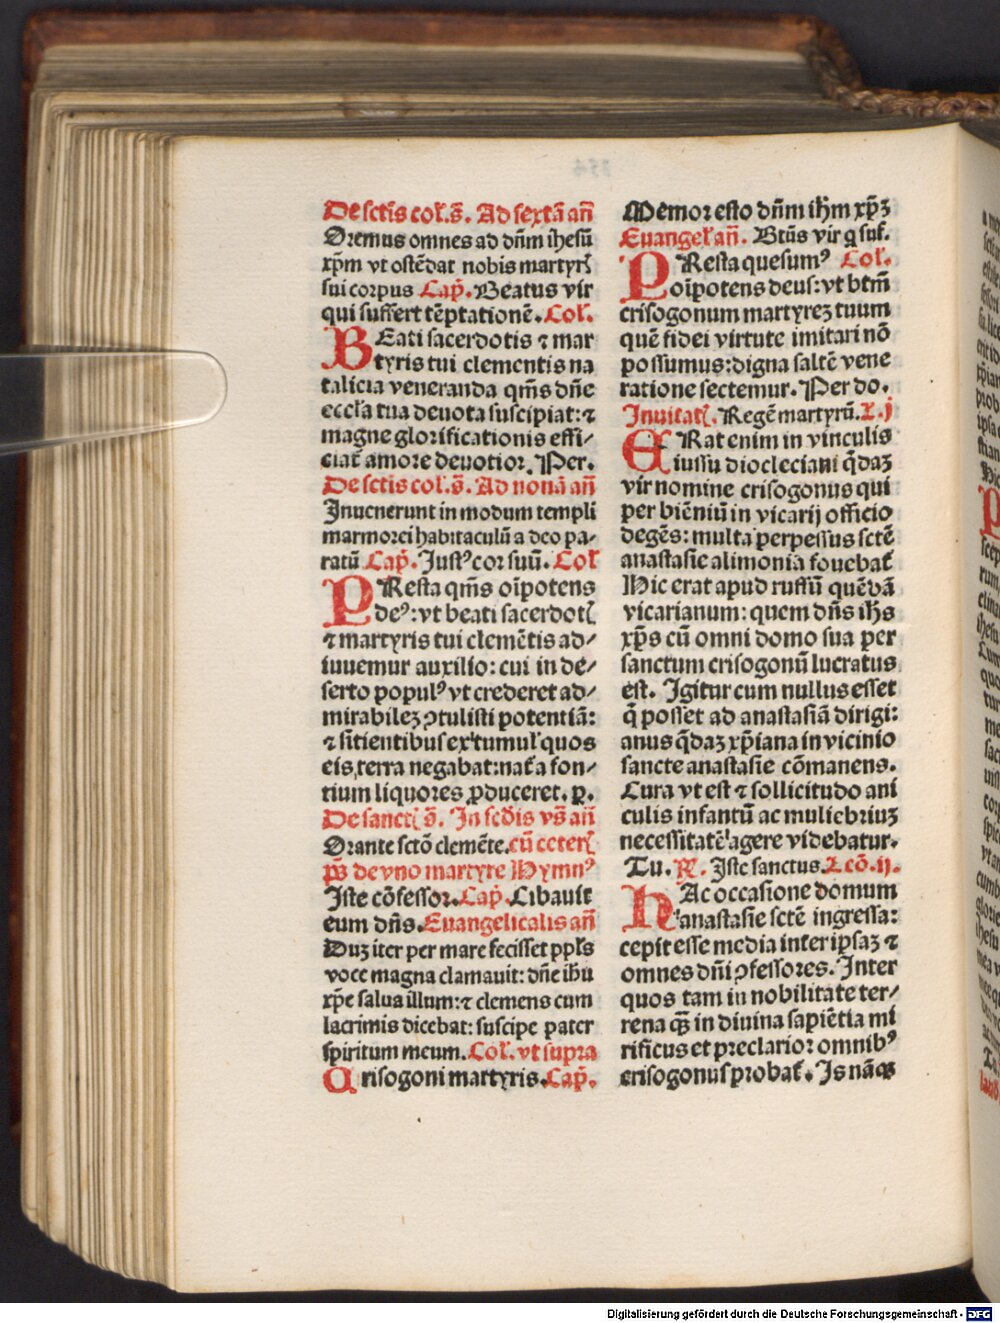 De sctīs col.̄s. Ad sextā an̄
Oremus omnes ad dn̄m ihesū
xp̄m vt ostēdat nobis martyrꝭ
sui corpus Cap̄. Beatus vir
qui suffert tēptationē. Col̄.
BEati sacerdotis ⁊ mar
tyris tui clementis na
talicia veneranda qm̄s dn̄e
eccl̄a tua deuota suscipiat: ⁊
magne glorificationis effi⸗
ciat̄ amore deuotior. Per.
De sctīs col.̄s. Ad nonā an̄
Inuenerunt in modum templi
marmorei habitaculū a deo pa⸗
ratū Cap̄. Justꝰ cor suū. Col̄
PResta qm̄s oīpotens
deꝰ: vt beati sacerdotꝭ
⁊ martyris tui clemētis ad⸗
iuuemur auxilio: cui in de⸗
serto populꝰ vt crederet ad⸗
mirabilez ꝯtulisti potentiā:
⁊ sitientibus ex tumul' quos
eis terra negabat: nat̄a fon⸗
tium liquores ꝓduceret. p̱.
De sanctꝭ s̄. In scd̄is vs̄ an̄
Orante sctō clemēte. cū ceterꝭ
ps̄ de vno martyre Hymnꝰ
Iste cōfessor. Cap̄. Cibauit
eum dn̄s. Euangelicalis an̄
Duz iter per mare fecisset ppl̄s
voce magna clamauit: dn̄e ihū
xp̄e salua illum: ⁊ clemens cum
lacrimis dicebat: suscipe pater
spiritum meum. Col̄. vt supra
Crisogoni martyris. Cap̄.
Memor esto dn̄m ih̄m xp̄ꝫ
Euangel̄ an̄. Btūs vir q̄ suf.
PResta quesumꝰ Col̄.
oīpotens deus: vt btm̄
crisogonum martyreꝫ tuum
quē fidei virtute imitari nō
possumus: digna saltē vene
ratione sectemur. Per do.
Inuitatꝭ. Regē martyrū. L. j
ERat enim in vinculis
iussu diocleciani q̄daꝫ
vir nomine crisogonus qui
per biēniū in vicarij officio
degēs: multa perpessus sctē
anastasie alimonia fouebat̄
Hic erat apud ruffū quēdā
vicarianum: quem dn̄s ih̄s
xp̄s cū omni domo sua per
sanctum crisogonū lucratus
est. Igitur cum nullus esset
q̄ posset ad anastasiā dirigi:
anus q̄daꝫ xp̄iana in vicinio
sancte anastasie cōmanens.
Cura vt est ⁊ sollicitudo ani
culis infantū ac muliebriuꝫ
necessitatē agere videbatur.
Tu. R̄. Iste sanctus. Lcō. ij.
HAc occasione domum
anastasie sctē ingressa:
cepit esse media inter ipsaꝫ ⁊
omnes dn̄i ꝯfessores. Inter
quos tam in nobilitate ter⸗
rena qꝫ̄ in diuina sapiētia mi
rificus et preclarior omnibꝰ
crisogonus probat̄. Is nāqꝫ
Digitalisierung gefördert durch die Deutsche Forschungsgemeinschaft - DFG